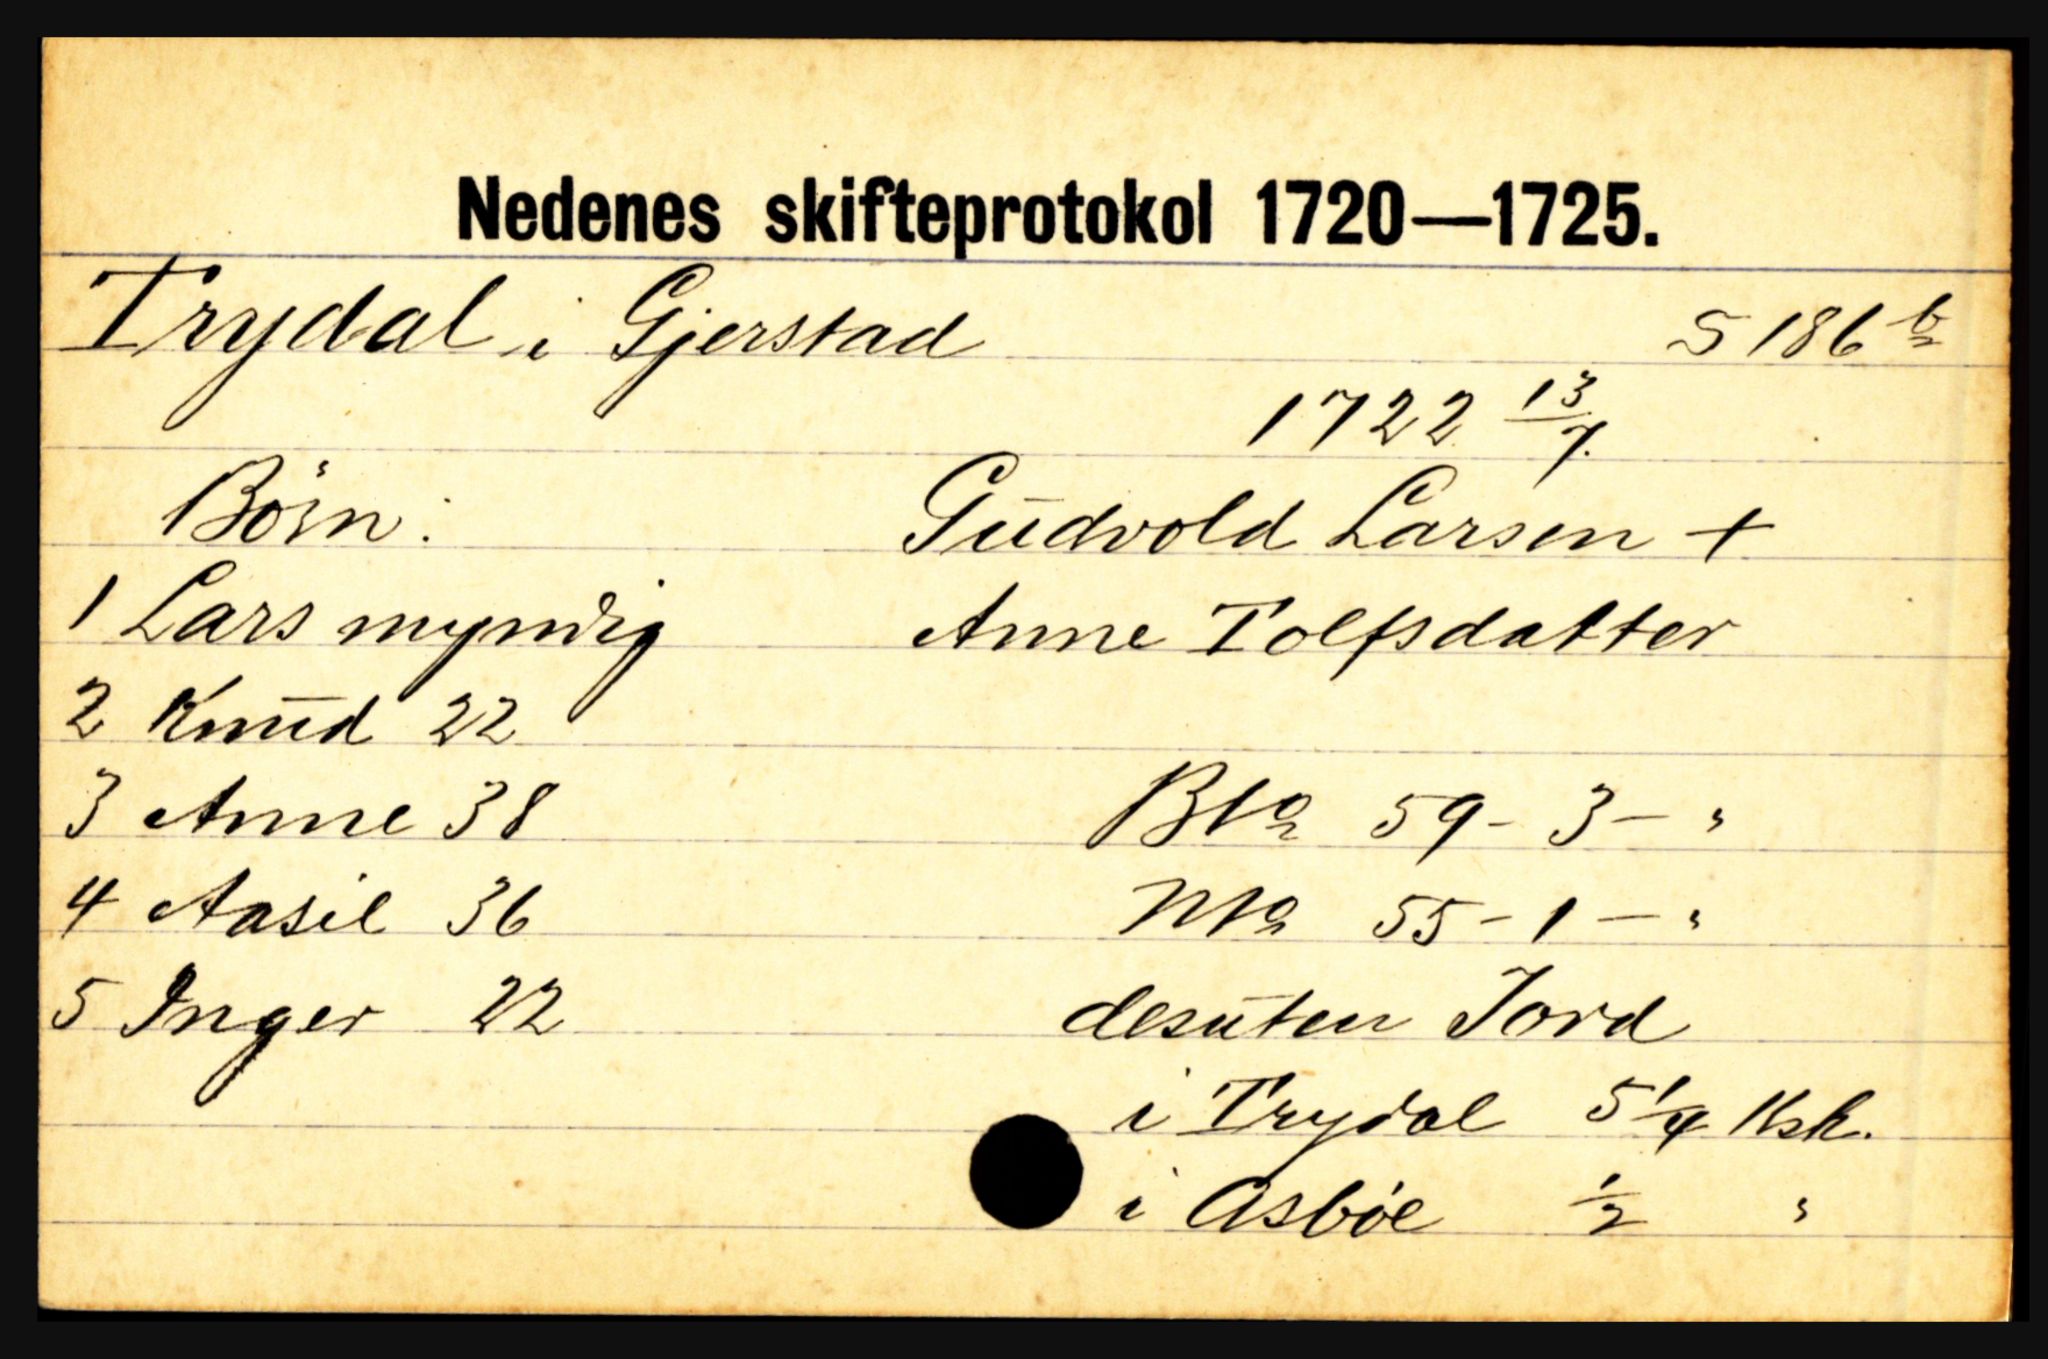 Nedenes skifteprotokol 1720—1725.
Trydal i Gjerstad S 186 b
1722 13/7.
Börn: Gudvold Larsen +
1 Lars myndig Anne Tolfsdatter
2 Knud 22
3 Anne 38 Bto 59 - 3 - "
4 Aasil 36 Nto 55 - 1 - "
5 Inger 22 desuten Jord
i Trydal 5 1/4 Ksk.
i Asbøe 1/2 "